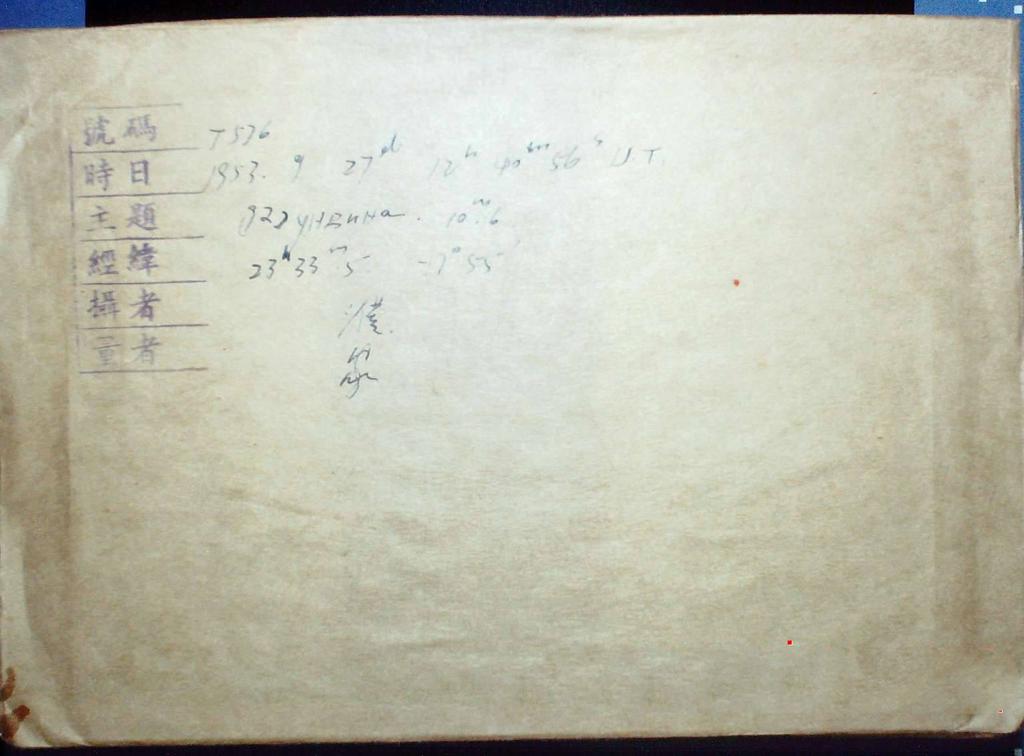 號碼 T536
時日 1953. 9 27d 12h 40m 56s U.T.
主題 (92) Ундина. 10m.6
經緯 23h33m.5 -7°55'
攝者
量者